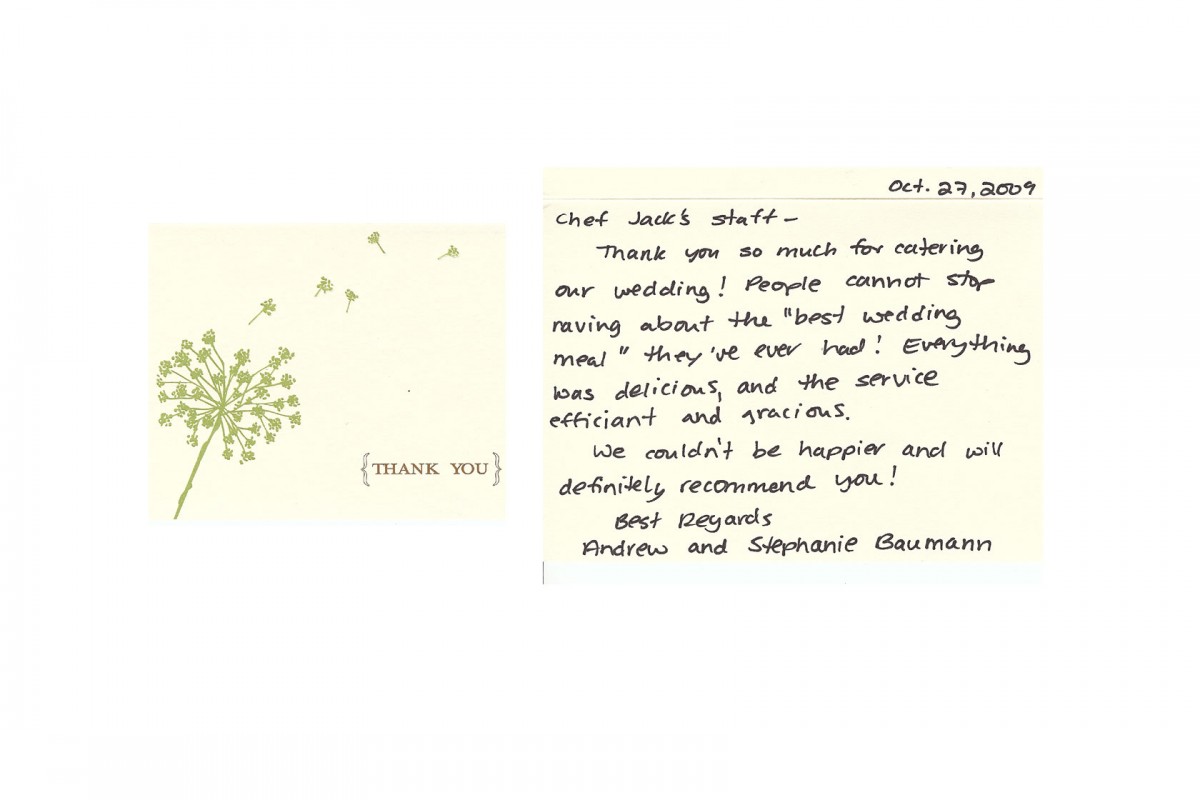 THANK YOU
Oct. 27, 2009
Chef Jack's staff –
Thank you so much for catering
our wedding! People cannot stop
raving about the "best wedding
meal" they've ever had! Everything
was delicious, and the service
efficiant and gracious.
We couldn't be happier and will
definitely recommend you!
Best Regards
Andrew and Stephanie Baumann